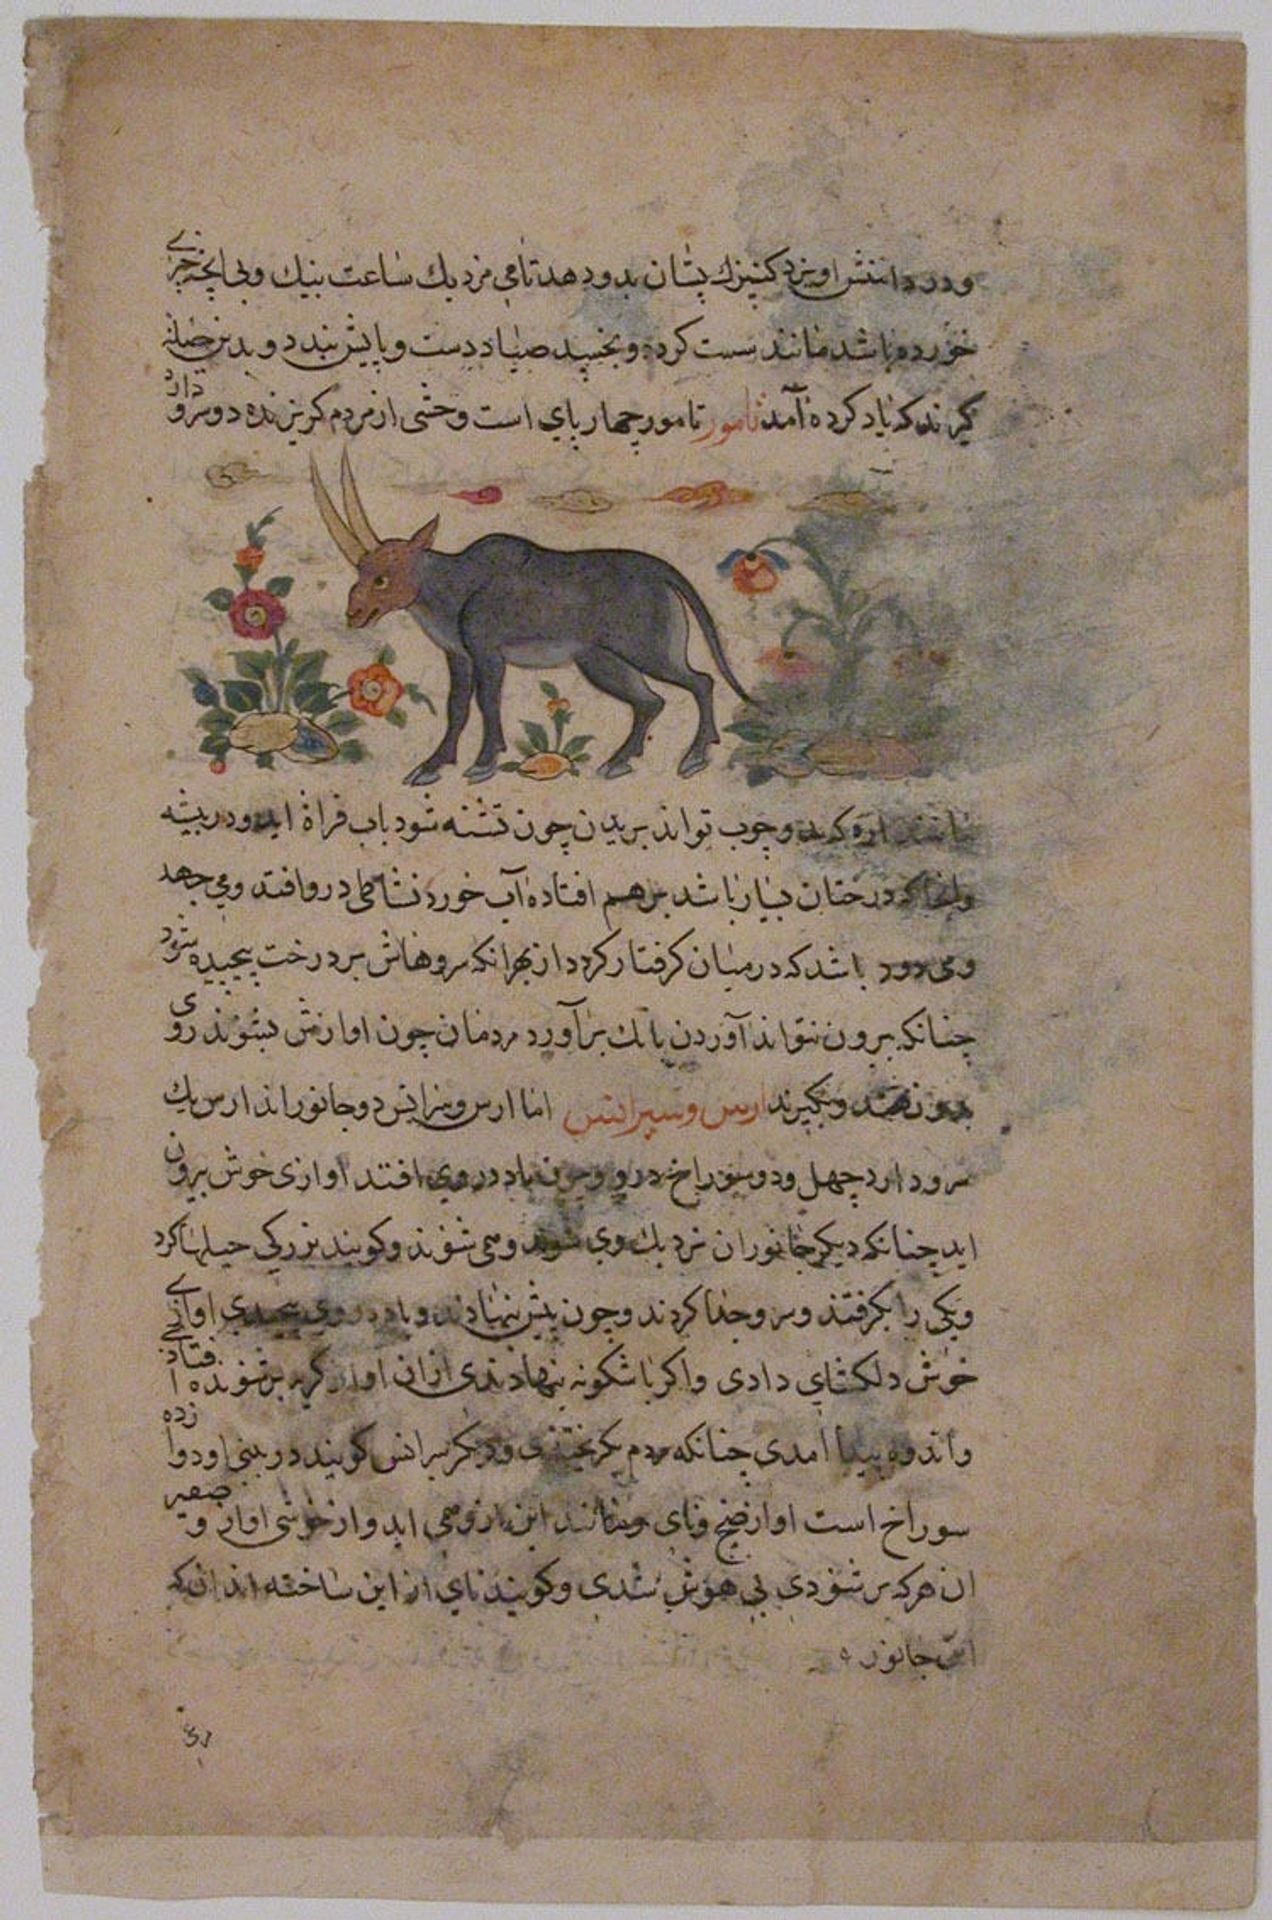 و در دانش او نزد کنیزک پستان بدو دهد تا می مزد یک ساعت بنیک و بی انچه چیزی
خورده باشد مانند سست کرده و بخسپد صیاد دست و پایش ببندد و بدین حیله
گیرند که یاد کرده آمد تامور تامور چهارپای است وحشی از مردم گریزنده دو سرو دارد
مانند اره که بدو چوب تواند بریدن چون تشنه شود باب فراة اید و در بیشه
و انجا که درختان بسیار باشد برهم افتاده آب خورد نشاطی درو افتد و می جهد
و می دود باشد که در میان گرفتار گردد از بهر انکه سروهاش بر درخت پیچیده شود
چنانکه برون نتواند آوردن بانک برآورد مردمان چون اوازش بشنوند روی
بدو نهند و بگیرند ارس و سیرانس اما ارس و سیرانس دو جانوراند ارس یک
سرو دارد چهل و دو سوراخ درو و چون باد در وی افتد اوازی خوش بیرون
اید چنانکه دیگر جانوران نزدیک وی شوند و می شنوند و گویند بزرگی حیلها کرد
و یکی را بگرفتند و سرو جدا کردند و چون پیش بنهادند و باد در وی پیچیدی اوازی
خوش دلکشای دادی و اگر باشگونه بنهادندی ازان اواز گریه بر شنونده افتادی
و اندوه پیدا آمدی چنانکه مردم بگریختندی و دیگر سیرانس گویند در بینی او دوازده
سوراخ است اواز صنج و نای و مانند این ازو می اید و از خوشی اواز و صفیر
ان هرکه بر شنودی بی هوش شدی و گویند نای از این ساخته اند ان که
این جانور